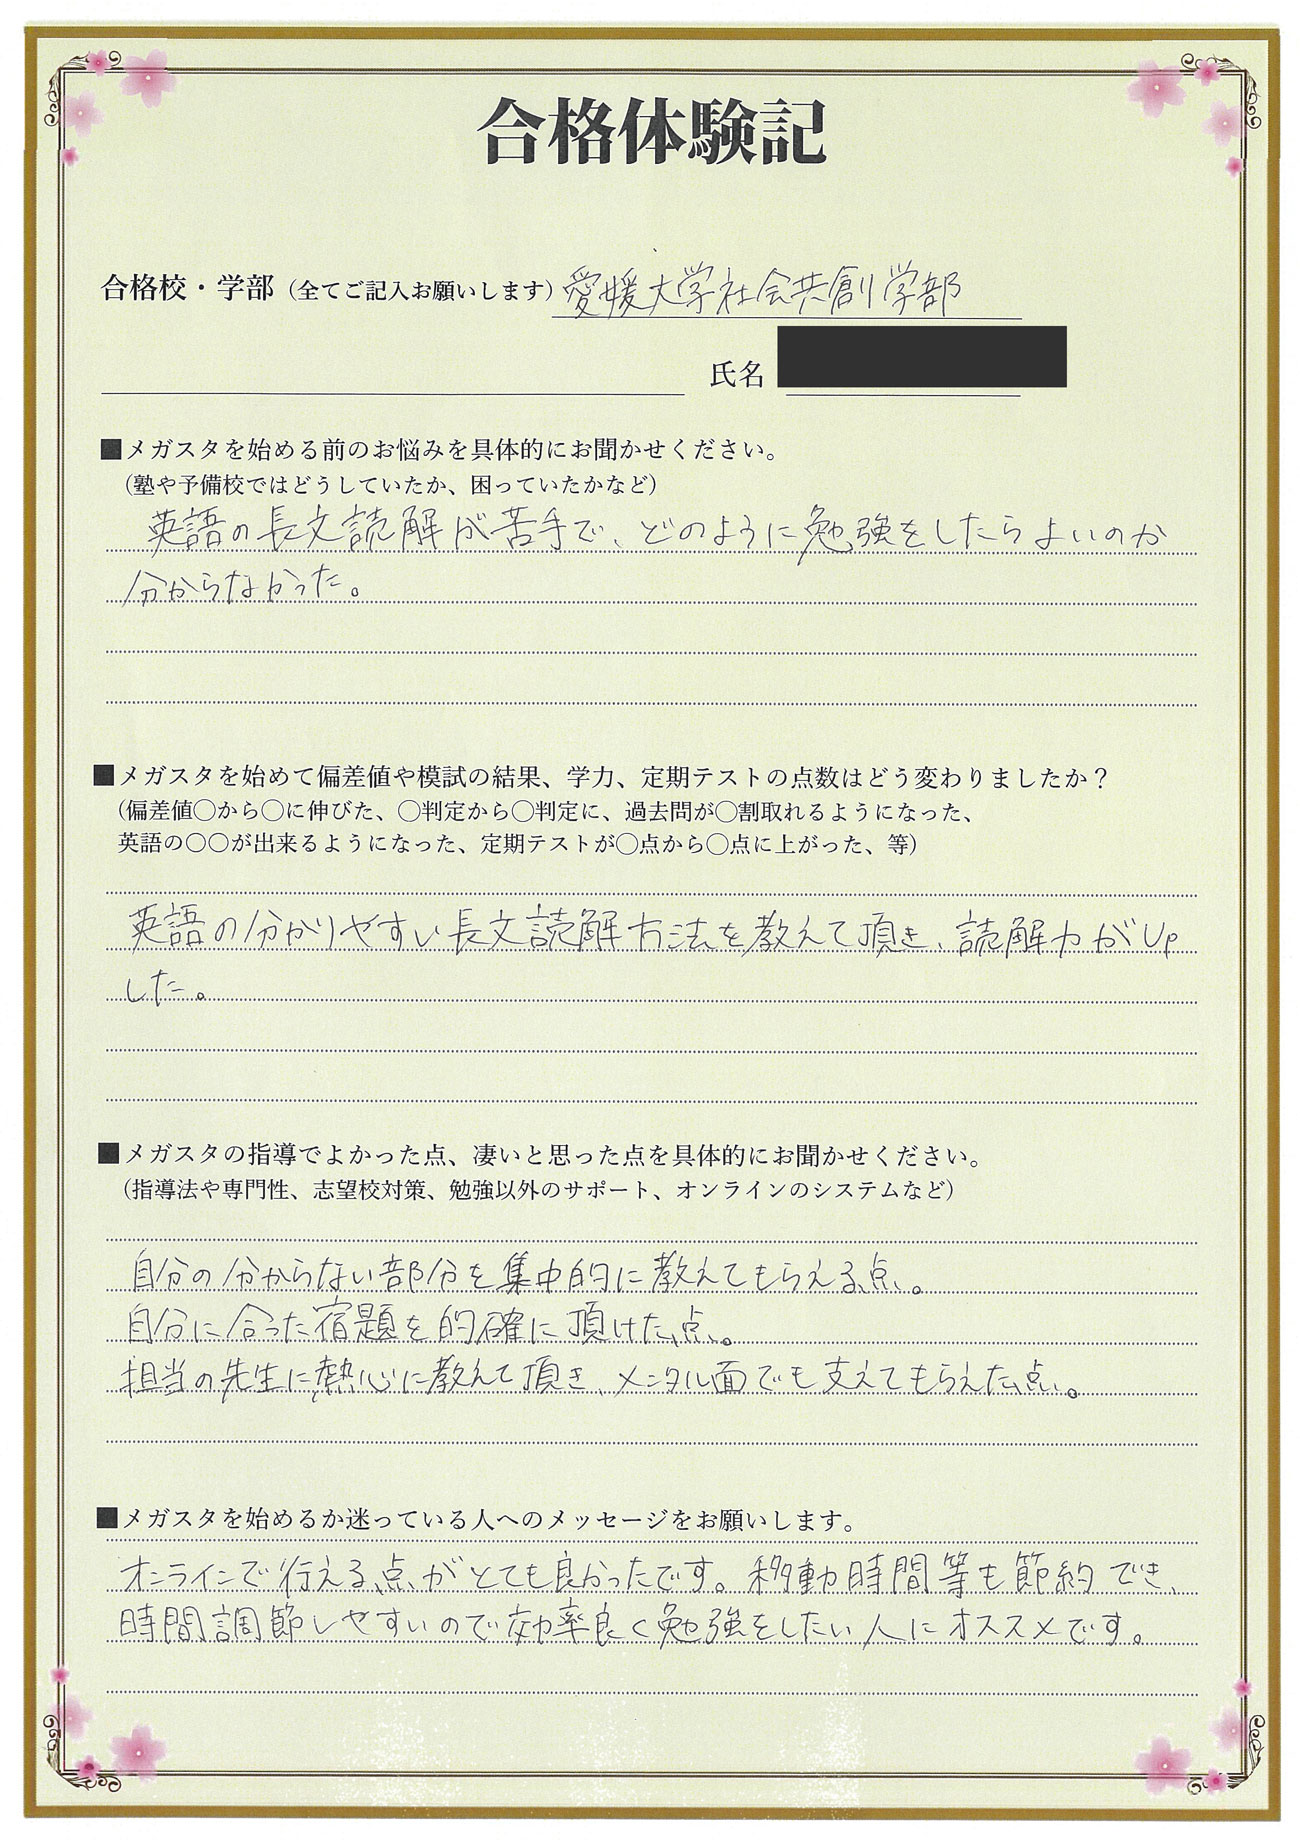 合格体験記
合格校・学部（全てご記入お願いします）愛媛大学社会共創学部
氏名
■メガスタを始める前のお悩みを具体的にお聞かせください。
（塾や予備校ではどうしていたか、困っていたかなど）
英語の長文読解が苦手で、どのように勉強をしたらよいのか
分からなかった。
■メガスタを始めて偏差値や模試の結果、学力、定期テストの点数はどう変わりましたか？
（偏差値〇から〇に伸びた、〇判定から〇判定に、過去問が〇割取れるようになった、
英語の〇〇が出来るようになった、定期テストが〇点から〇点に上がった、等）
英語の分かりやすい長文読解方法を教えて頂き、読解力がUp
した。
■メガスタの指導でよかった点、凄いと思った点を具体的にお聞かせください。
（指導法や専門性、志望校対策、勉強以外のサポート、オンラインのシステムなど）
自分の分からない部分を集中的に教えてもらえる点。
自分に合った宿題を的確に頂けた点。
担当の先生に熱心に教えて頂き、メンタル面でも支えてもらえた点。
■メガスタを始めるか迷っている人へのメッセージをお願いします。
オンラインで行える点がとても良かったです。移動時間等も節約でき、
時間調節しやすいので効率良く勉強をしたい人にオススメです。